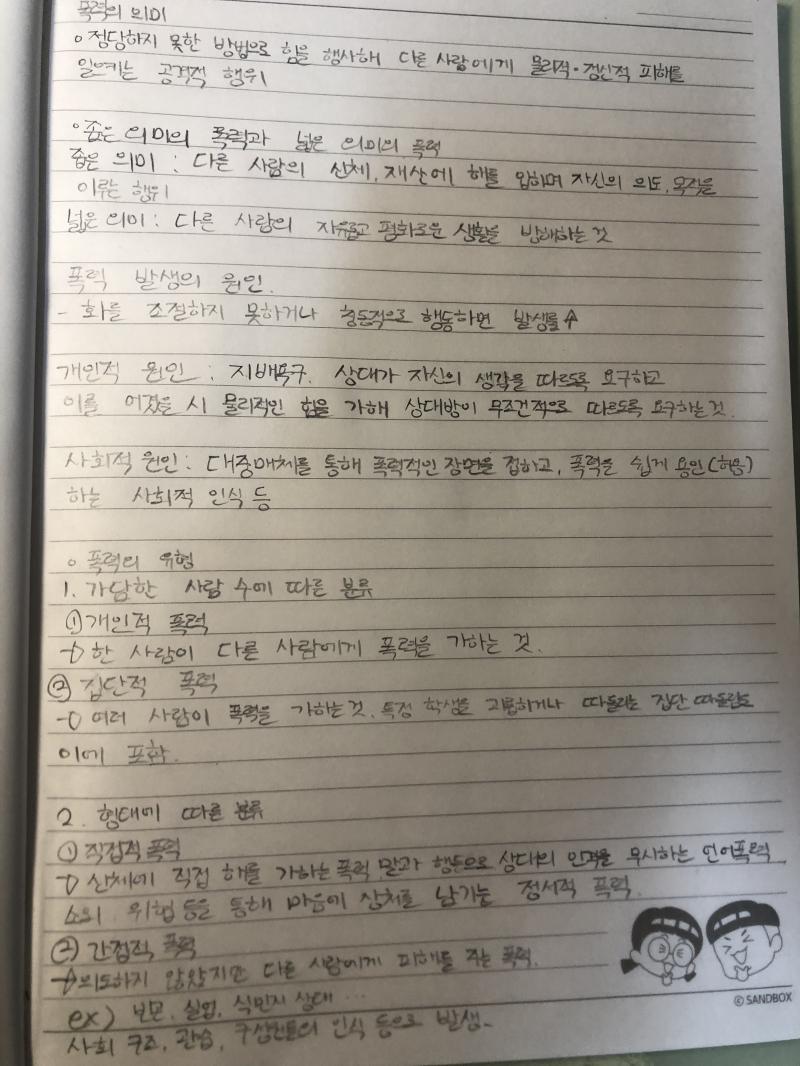 폭력의 의미
○정당하지 못한 방법으로 힘을 행사해 다른 사람에게 물리적·정신적 피해를
일으키는 공격적 행위
○좁은 의미의 폭력과 넓은 의미의 폭력
좁은 의미 : 다른 사람의 신체, 재산에 해를 입히며 자신의 의도, 목적을
이루는 행위
넓은 의미 : 다른 사람의 자유롭고 평화로운 생활을 방해하는 것
폭력 발생의 원인.
- 화를 조절하지 못하거나 충동적으로 행동하면 발생률↑
개인적 원인 : 지배욕구. 상대가 자신의 생각을 따르도록 요구하고
이를 어겼을 시 물리적인 힘을 가해 상대방이 무조건적으로 따르도록 요구하는 것.
사회적 원인 : 대중매체를 통해 폭력적인 장면을 접하고, 폭력을 쉽게 용인(허용)
하는 사회적 인식 등
○ 폭력의 유형
1. 가담한 사람 수에 따른 분류
① 개인적 폭력
→ 한 사람이 다른 사람에게 폭력을 가하는 것.
② 집단적 폭력
→ 여러 사람이 폭력을 가하는 것. 특정 학생을 괴롭히거나 따돌리는 집단 따돌림도
이에 포함.
2. 형태에 따른 분류
① 직접적 폭력
→ 신체에 직접 해를 가하는 폭력 말과 행동으로 상대의 인격을 무시하는 언어폭력
소외 위협 등을 통해 마음에 상처를 남기는 정서적 폭력.
② 간접적 폭력
→ 의도하지 않았지만 다른 사람에게 피해를 주는 폭력.
ex) 빈곤, 실업, 식민지 상태 ...
사회 구조, 관습, 구성원들의 인식 등으로 발생.
© SANDBOX